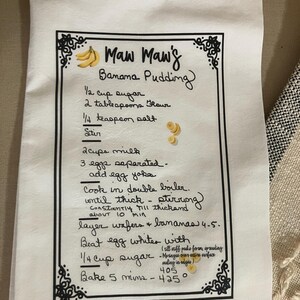 Maw Maw's
Banana Pudding
1/2 cup sugar
2 tablespoons flour
1/4 teaspoon salt
Stir
2 cups milk
3 eggs separated -
add egg yoks
Cook in double boiler
until thick - stirring
constantly till thickens
about 10 min
layer wafers & bananas 4.5.
Beat egg whites with
1/4 cup sugar
till stiff peaks form spreading
Meringue over entire surface
sealing in edges
405
Bake 5 mins - 425°